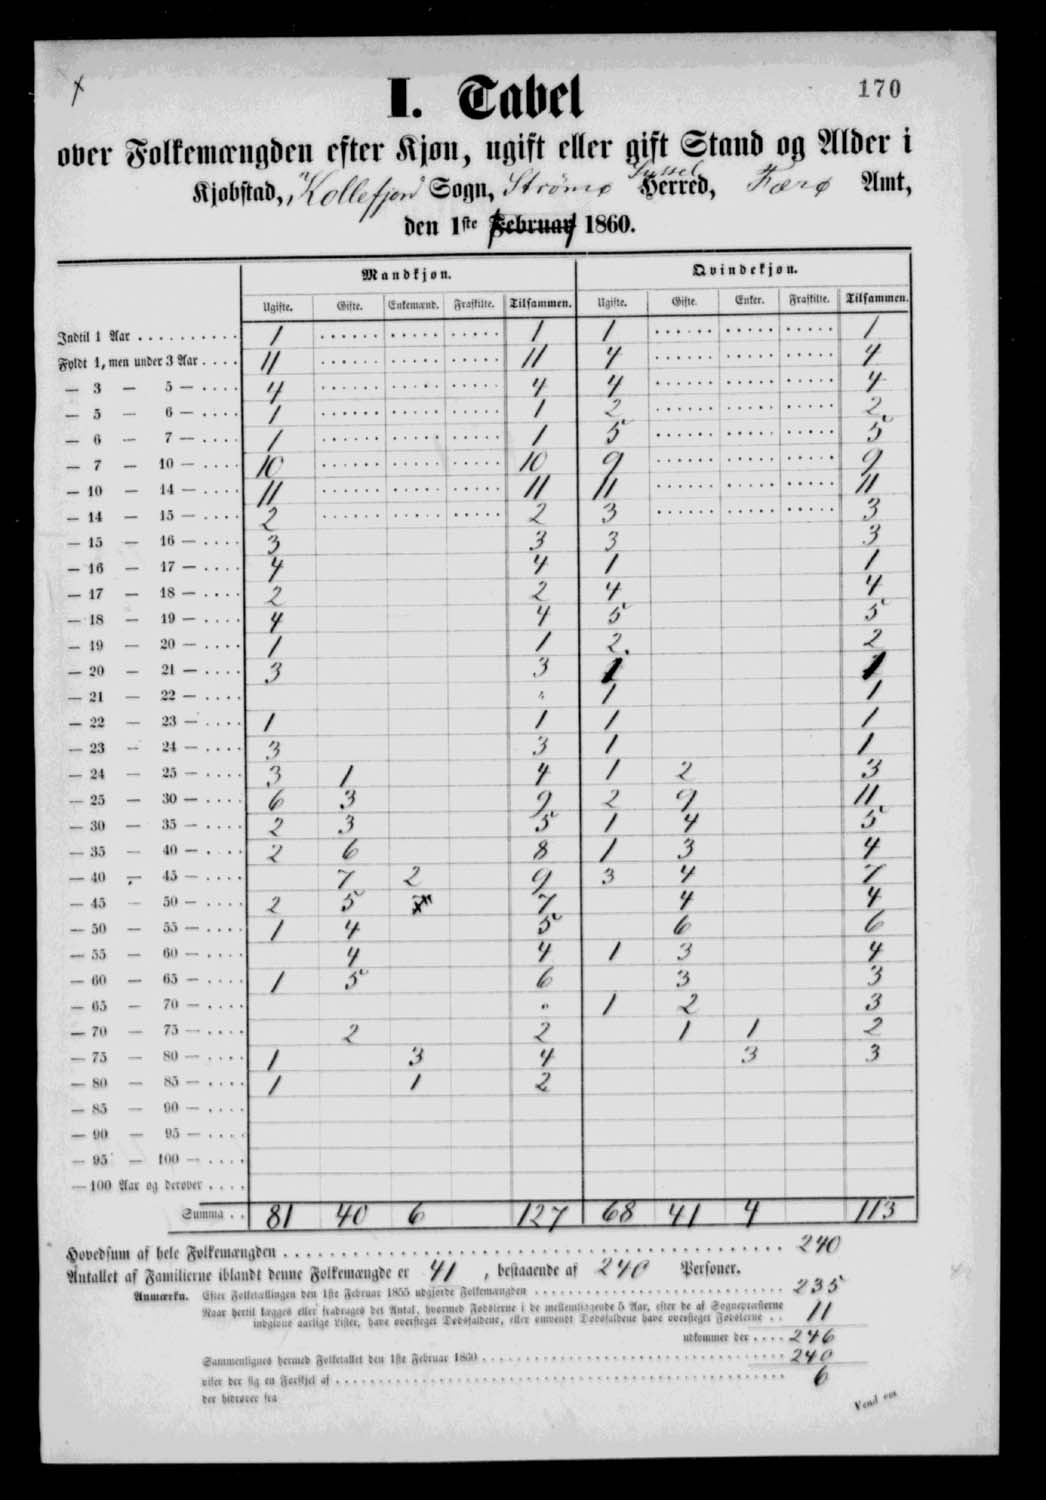 170
I. Tabel
over Folkemængden efter Kjøn, ugift eller gift Stand og Alder i
Kjøbstad, Kollefjord Sogn, Strømø Syssel Herred, Færø Amt,
den 1ste Februar 1860.
Mandkjøn. Qvindekjøn.
Ugifte. Gifte. Enkemænd. Fraskilte. Tilsammen. Ugifte. Gifte. Enker. Fraskilte. Tilsammen.
Indtil 1 Aar . . . . 1 1 1 1
Fyldt 1, men under 3 Aar . . . . 11 11 4 4
— 3 — 5 — . . . . 4 4 4 4
— 5 — 6 — . . . . 1 1 2 2
— 6 — 7 — . . . . 1 1 5 5
— 7 — 10 — . . . . 10 10 9 9
— 10 — 14 — . . . . 11 11 11 11
— 14 — 15 — . . . . 2 2 3 3
— 15 — 16 — . . . . 3 3 3 3
— 16 — 17 — . . . . 4 4 1 1
— 17 — 18 — . . . . 2 2 4 4
— 18 — 19 — . . . . 4 4 5 5
— 19 — 20 — . . . . 1 1 2 2
— 20 — 21 — . . . . 3 3 1 1
— 21 — 22 — . . . . 1 1
— 22 — 23 — . . . . 1 1 1 1
— 23 — 24 — . . . . 3 3 1 1
— 24 — 25 — . . . . 3 1 4 1 2 3
— 25 — 30 — . . . . 6 3 9 2 9 11
— 30 — 35 — . . . . 2 3 5 1 4 5
— 35 — 40 — . . . . 2 6 8 1 3 4
— 40 — 45 — . . . . 7 2 9 3 4 7
— 45 — 50 — . . . . 2 5 7 4 4
— 50 — 55 — . . . . 1 4 5 6 6
— 55 — 60 — . . . . 4 4 1 3 4
— 60 — 65 — . . . . 1 5 6 3 3
— 65 — 70 — . . . . 1 2 3
— 70 — 75 — . . . . 2 2 1 1 2
— 75 — 80 — . . . . 1 3 4 3 3
— 80 — 85 — . . . . 1 1 2
— 85 — 90 — . . . .
— 90 — 95 — . . . .
— 95 — 100 — . . . .
— 100 Aar og derover . . . .
Summa . . 81 40 6 127 68 41 4 113
Hovedsum af hele Folkemængden . . . . 240
Antallet af Familierne iblandt denne Folkemængde er 41, bestaaende af 240 Personer.
Anmærkn. Efter Folketællingen den 1ste Februar 1855 udgjorde Folkemængden . . . . 235
Naar hertil lægges eller fradrages det Antal, hvormed Fødslerne i de mellemliggende 5 Aar, efter de af Sognepræsterne
indgivne aarlige Lister, have oversteget Dødsfaldene, eller omvendt Dødsfaldene have oversteget Fødslerne . . 11
udkommer der . . . . 246
Sammenlignes hermed Folketallet den 1ste Februar 1860 . . . . 240
viser der sig en Forskjel af . . . . 6
der hidrører fra
Vend om